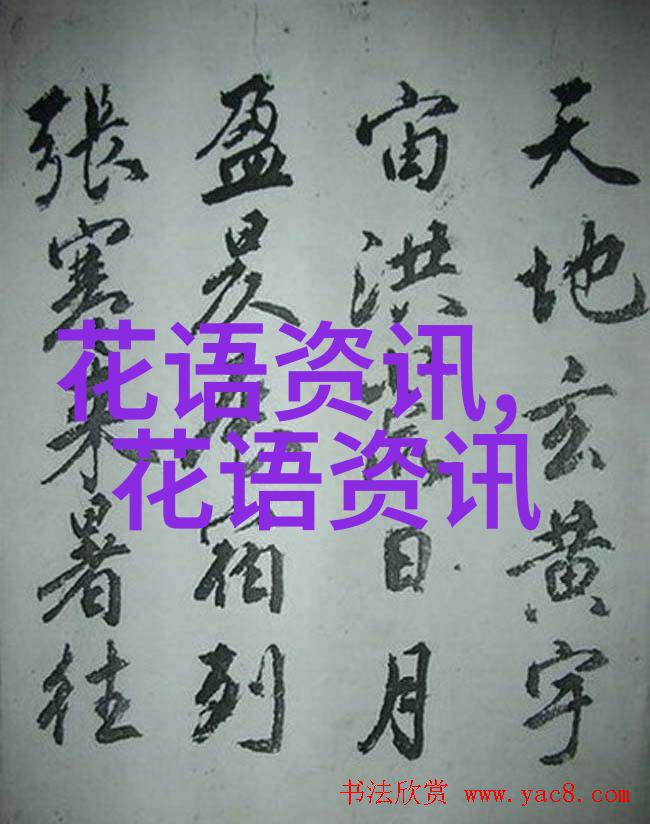 天地玄黄宇
宙洪日月
盈昃宿列
張寒来暑往
花语资讯,
花语资讯
书法欣赏 www.yac8.com